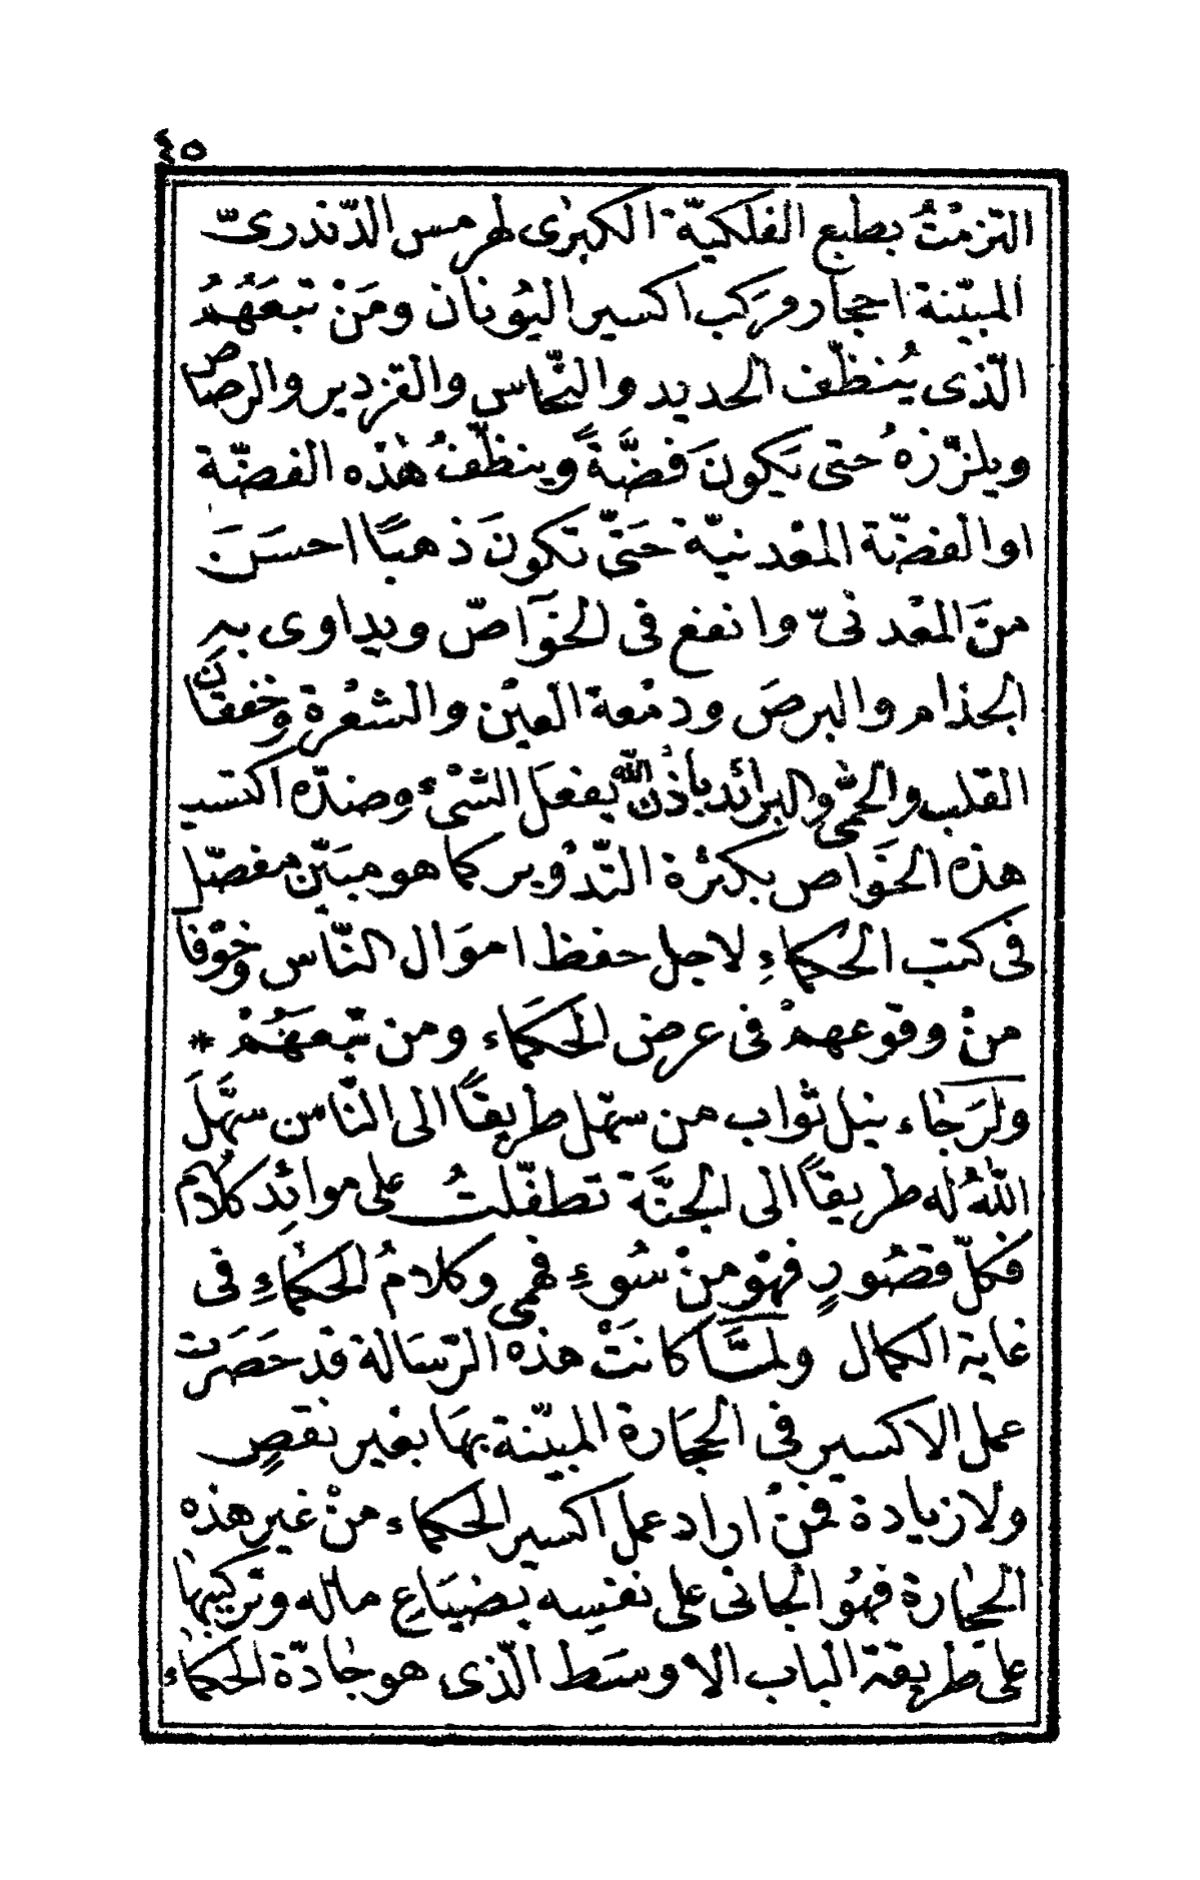 ٤٥
التزمْتُ بطبع الفلكيّة الكبرٰى لهرمس الدّندرىّ
المبيّنة احجار ومركب اكسير اليُونان ومَنْ تبعَهُمُ
الّذى يُنظّف الحديد والنّحاس والقزدير والرصاص
ويلزّزهُ حتى يَكونَ فضَّةً وينظّفُ هٰذه الفضّة
او الفضّة المعْدنيّة حَتىّ تَكونَ ذهبًا احسَنَ
منَ المعْدنىّ وانفع فى الخَوَاصّ ويداوى به
الجذام والبرصَ ودمْعة العيْن والشعْرة وخفقان
القلب والحمّٰى والبرائد باذْن اللّٰه يفعَل الشّىْء وضدّه اكتسب
هذه الخَوَاص بكثْرة التّدْوير كما هو مبَيّن مفصّل
فى كتب الحُكماءِ لاجل حفظ اموَال النّاس وخوْفا
منْ وقوعهمْ فى عرض الحَكماء ومن تّبعَهُمْ *
ولرَجٰاء نيل ثواب من سهّل طريقًا الى النّاس سهَّلَ
اللّٰهُ لهُ طريقًا الى الجنَّة تطفّلتُ على موائدِ كلامٰهم
فكلّ قصُورٍ فهْو منْ سُوءِ فهمى وكلامُ الحكمٰاءِ فى
غاية الكمال ولمَّا كانَتْ هذه الرّسَالة قد حَصَرَت
عمل الاكسير فى الحجَارة المبيّنة بهَا بغير نقصٍ
ولا زيادة فمنْ اراد عمل اكسير الحكماء منْ غير هذه
الحجٰارة فهُو الجانى على نفسه بضيَاعِ ماله وتركيبهٰا
على طريقة الباب الاوسَط الّذى هو جٰادّة الحكمٰاء